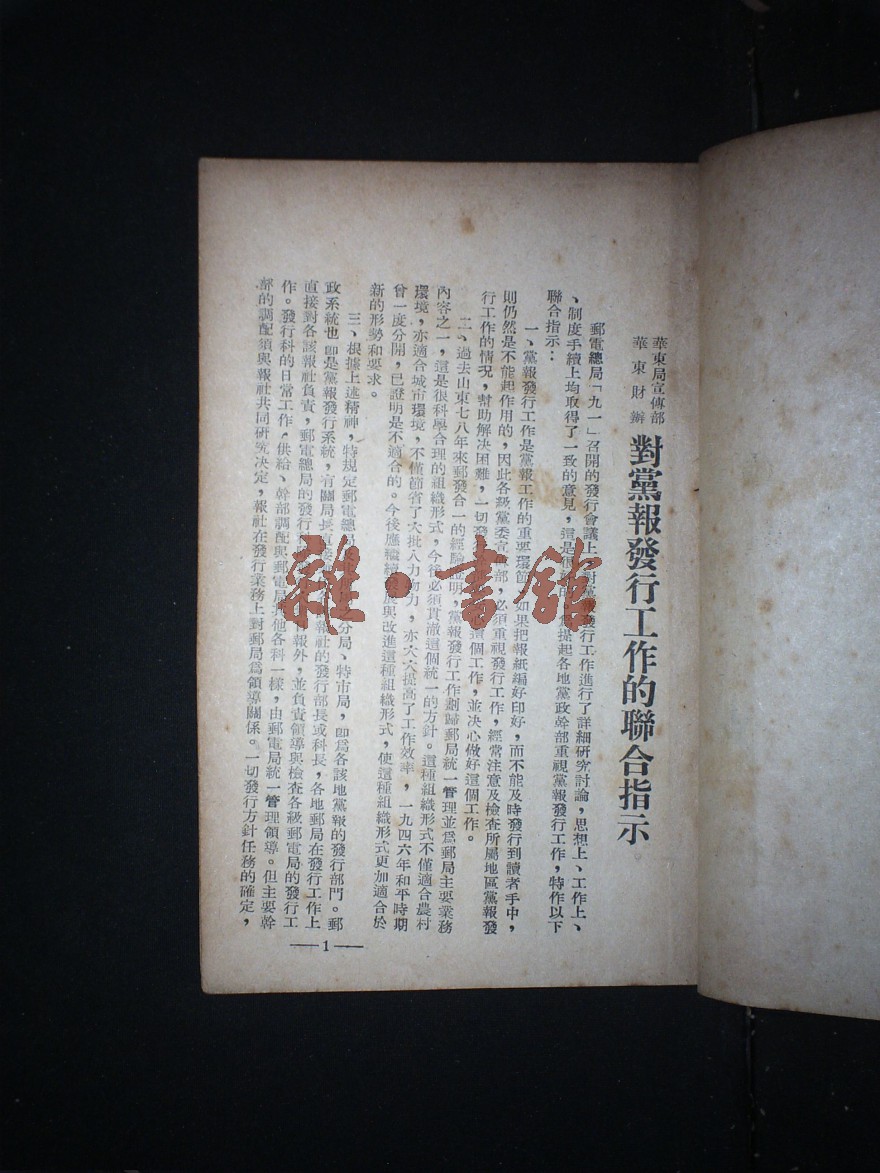 華東局宣傳部
華東財辦
對黨報發行工作的聯合指示
郵電總局「九一」召開的發行會議上,對黨報發行工作進行了詳細研究討論,思想上、工作上、
、制度手續上均取得了一致的意見,這是很 提起各地黨政幹部重視黨報發行工作,特作以下
聯合指示:
一、黨報發行工作是黨報工作的重要環節,如果把報紙編好印好,而不能及時發行到讀者手中,
則仍然是不能起作用的,因此各級黨委宣傳部,必須重視發行工作,經常注意及檢查所屬地區黨報發
行工作的情況,幫助解决困難,一切發 這個工作,並决心做好這個工作。
二、過去山東七八年來郵發合一的經驗證明,黨報發行工作劃歸郵局統一管理並爲郵局主要業務
內容之一,這是很科學合理的組織形式,今後必須貫澈這個統一的方針。這種組織形式不僅適合農村
環境,亦適合城市環境,不僅節省了大批人力物力,亦大大提高了工作效率,一九四六年和平時期
曾一度分開,已證明是不適合的。今後應繼續發展與改進這種組織形式,使這種組織形式更加適合於
新的形勢和要求。
三、根據上述精神,特規定郵電總局 分局、特市局,即爲各該地黨報的發行部門。郵
政系統也即是黨報發行系統,有關局長直接 報社的發行部長或科長,各地郵局在發行工作上
直接對各該報社負責,郵電總局的發行 報外,並負責領導與檢查各級郵電局的發行工
作。發行科的日常工作,供給、幹部調配與郵電局其他各科一樣,由郵電局統一管理領導。但主要幹
部的調配須與報社共同研究决定,報社在發行業務上對郵局爲領導關係。一切發行方針任務的確定,
—1—
雜·書館